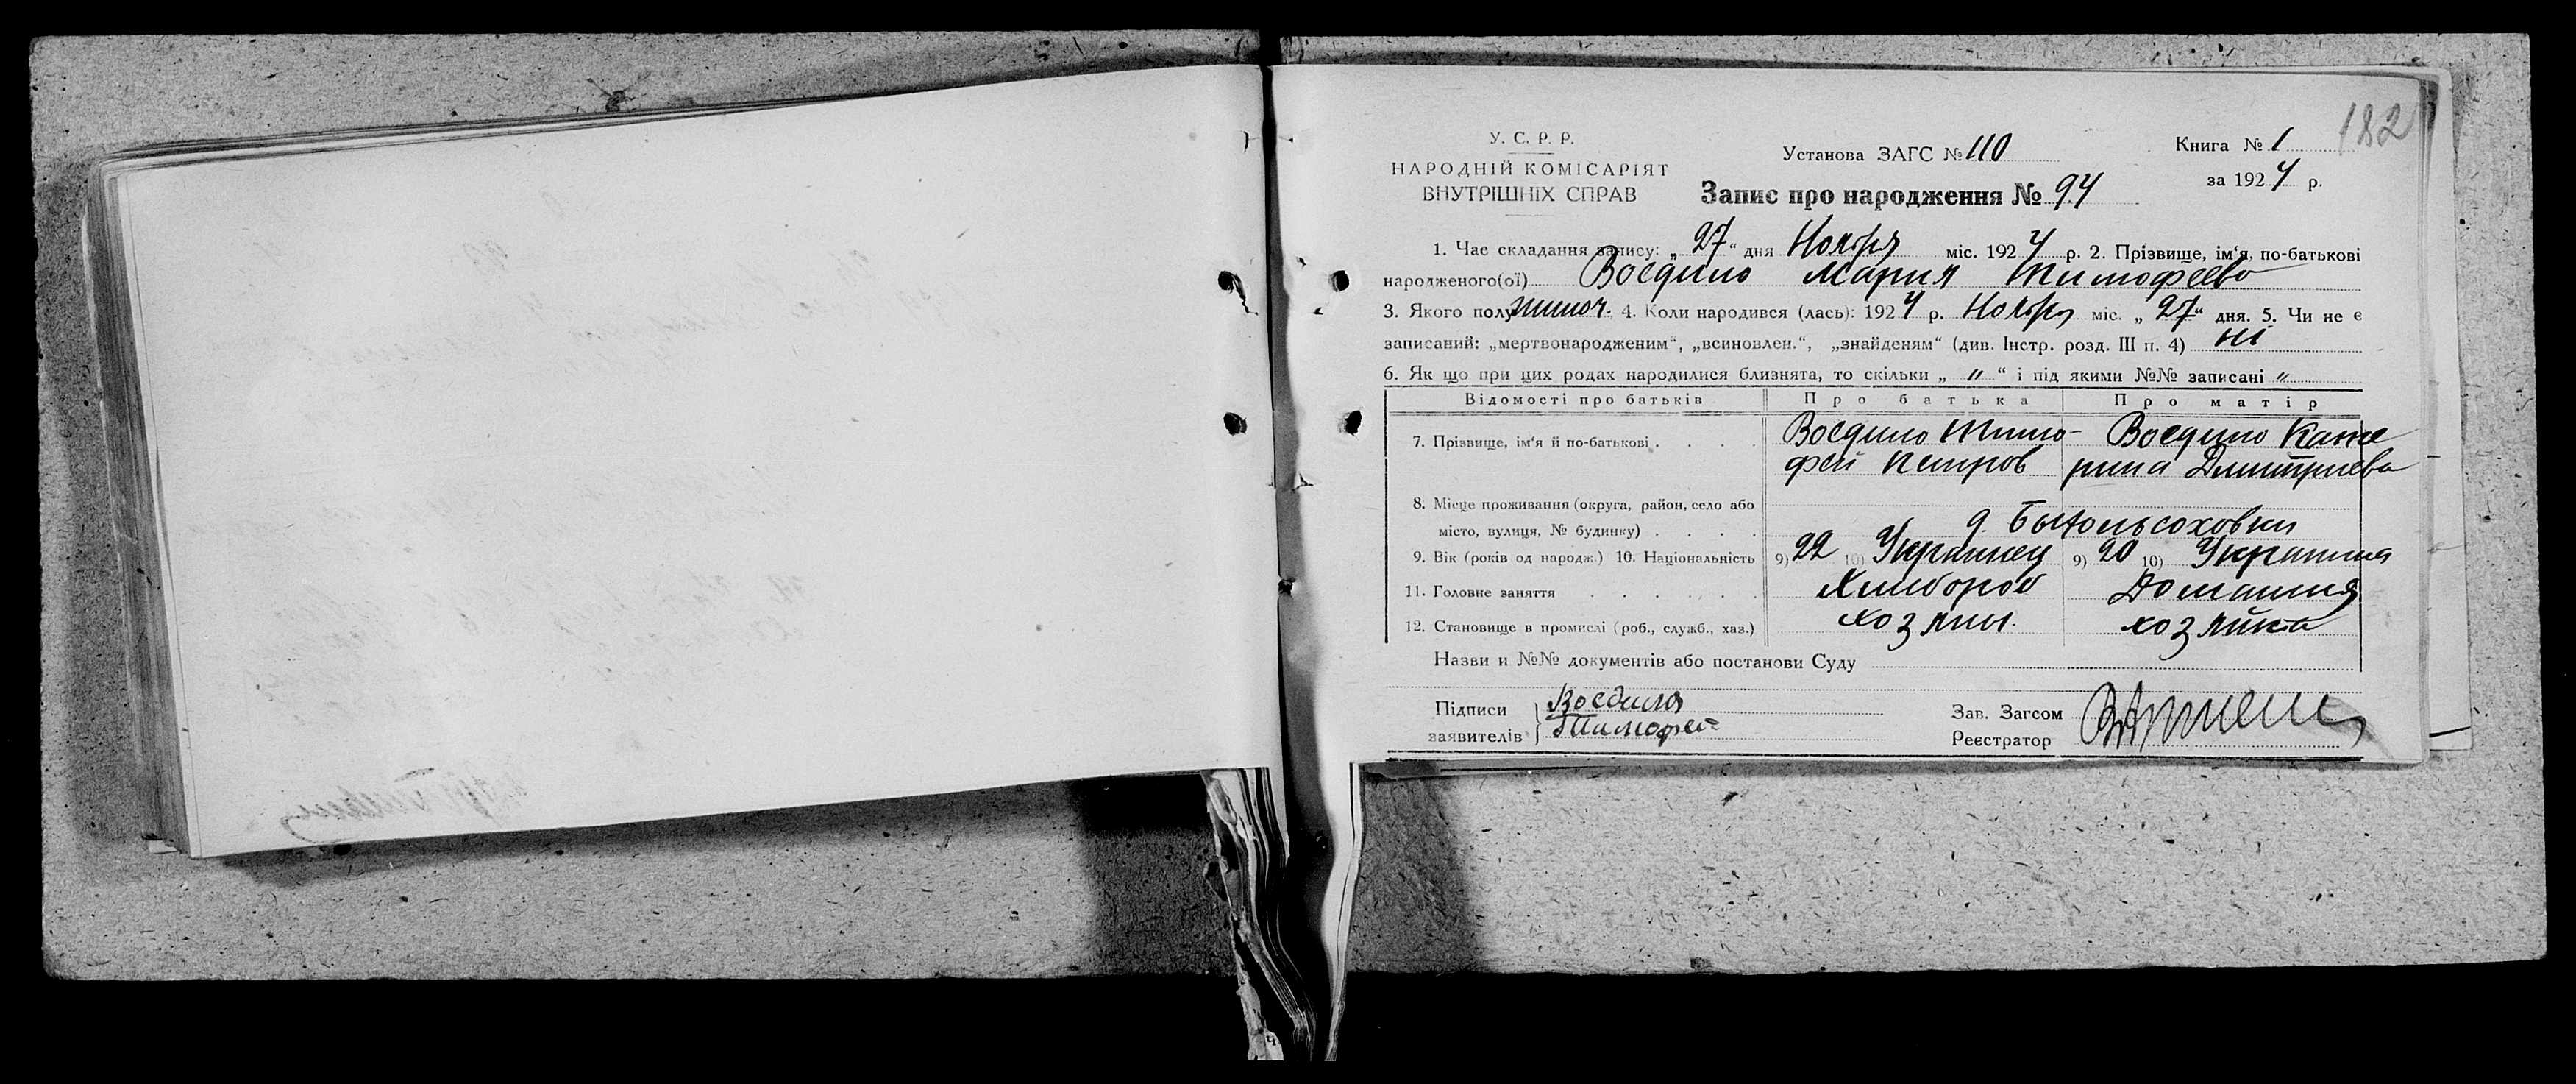 182
У. С. Р. Р.
НАРОДНІЙ КОМІСАРІЯТ
ВНУТРІШНІХ СПРАВ
Установа ЗАГС № 110
Книга № 1
за 1924 р.
Запис про народження № 94
1. Час складання запису: „27“ дня Ноября міс. 1924 р. 2. Прізвище, ім‘я, по-батькові
народженого(ої) Воедило Мария Тимофеева
3. Якого полу жиноч. 4. Коли народився (лась): 1924 р. Ноября міс. „27“ дня. 5. Чи не є
записаний: „мертвонародженим“, „всиновлен.“, „знайденям“ (див. Інстр. розд. III п. 4) ні
6. Як що при цих родах народилися близнята, то скільки „ " “ і під якими №№ записані "
Відомості про батьків Про батька Про матір
7. Прізвище, ім‘я й по-батькові . . . . Воедило Тимо- Воедило Кате
фей Петров рина Дмитриева
8. Місце проживання (округа, район, село або
місто, вулиця, № будинку) . . . . д
9. Вік (років од народж.) 10. Національність 9) 22 10) Украинец 9) 20 10) Украинка
11. Головне заняття . . . . . Хлибороб Домашня
12. Становище в промислі (роб., служб., хаз.) хозяин. хозяйка
Назви и №№ документів або постанови Суду
Підписи Воедило
заявителів Тимофей
Зав. Загсом
Реєстратор